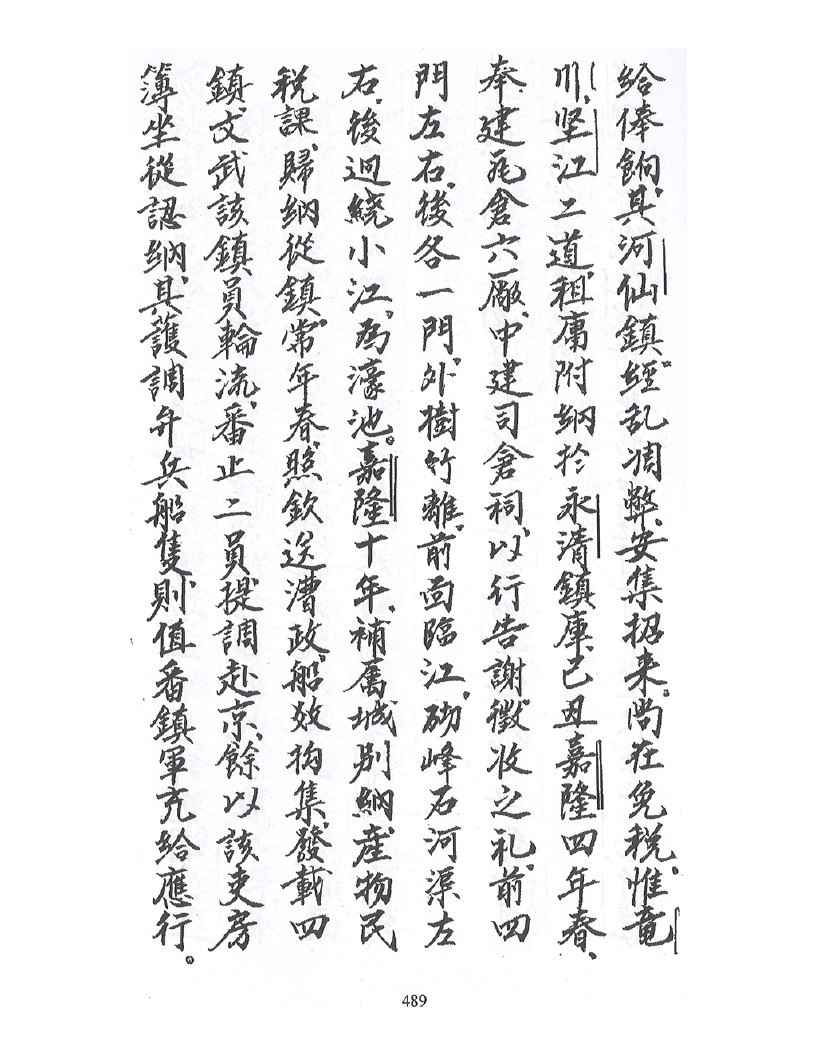 給俸餉其河仙鎮經乱凋弊安集招来尚在免税惟竜
川坚江二道租庸附納於永清鎮庫己丑嘉隆四年春
奉建瓦倉六厫中建司倉祠以行告謝徵收之礼前四
門左右後各一門外樹竹離前面臨江砌峰石河渠左
右後迴繞小江為濠池嘉隆十年補厲城別納産物民
税課歸納從鎮常年春照欽送漕政船效拘集發載四
鎮文武該鎮員輪流番止二員提調赴京餘以該吏房
簿坐從認納其護調弁兵船隻則值番鎮軍充給應行
489